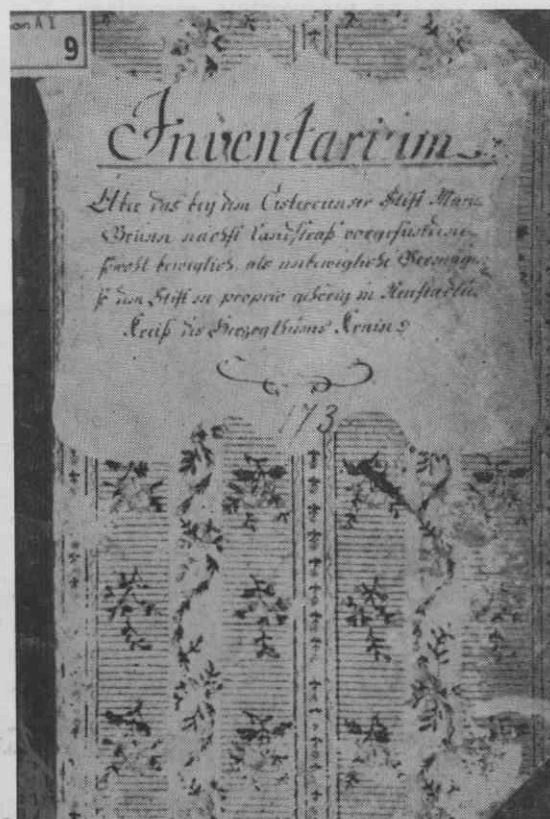 9
Inventarium
Über das bey dem Cistercienser Stift Maria
Brunn nächst Landstraß vorgefundene
sowohl bewegliche, als unbewegliche Vermögen
so dem Stift in proprio gehörig in Neustadtler
Kreiß des Herzogthums Krain
173